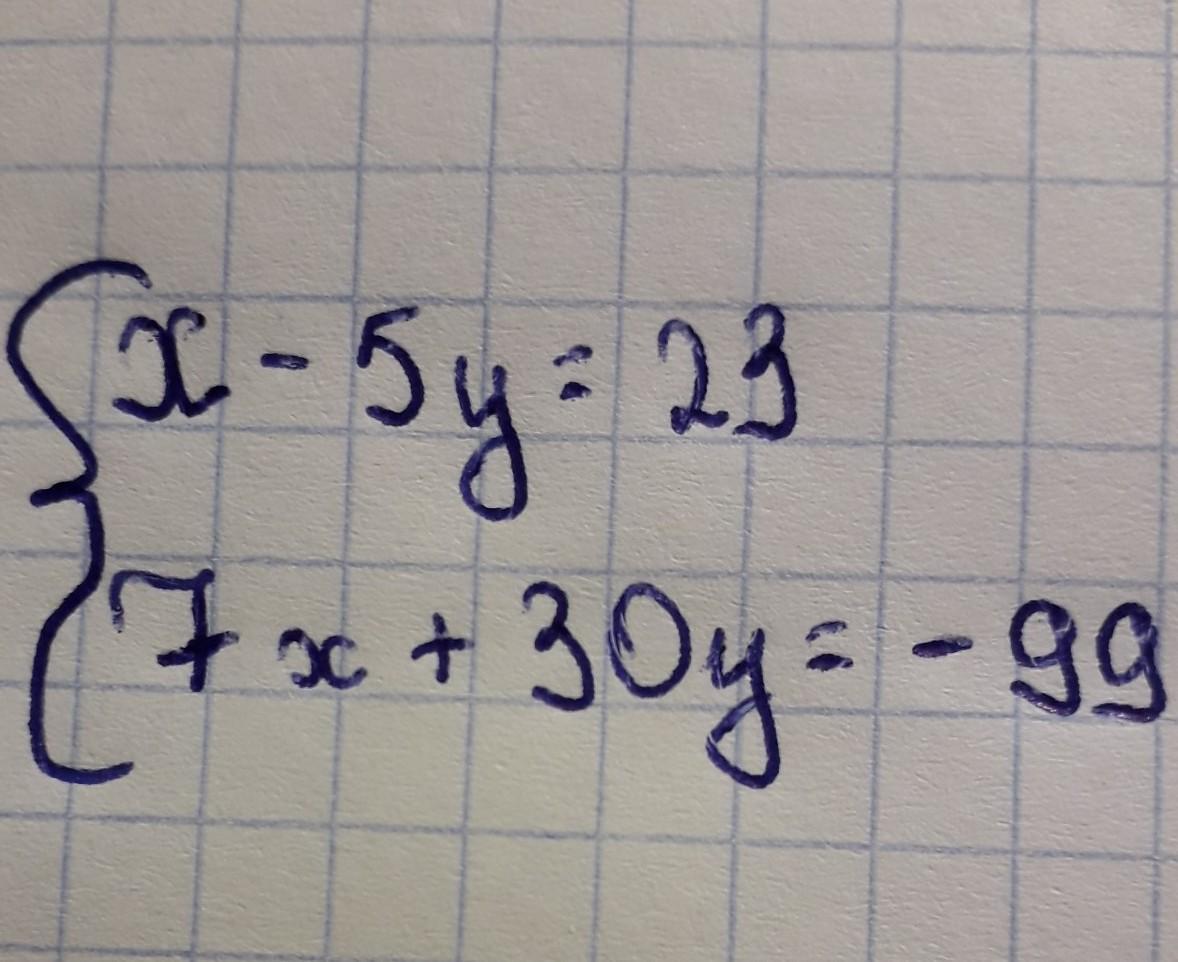 x - 5y = 23
7x + 30y = - 99